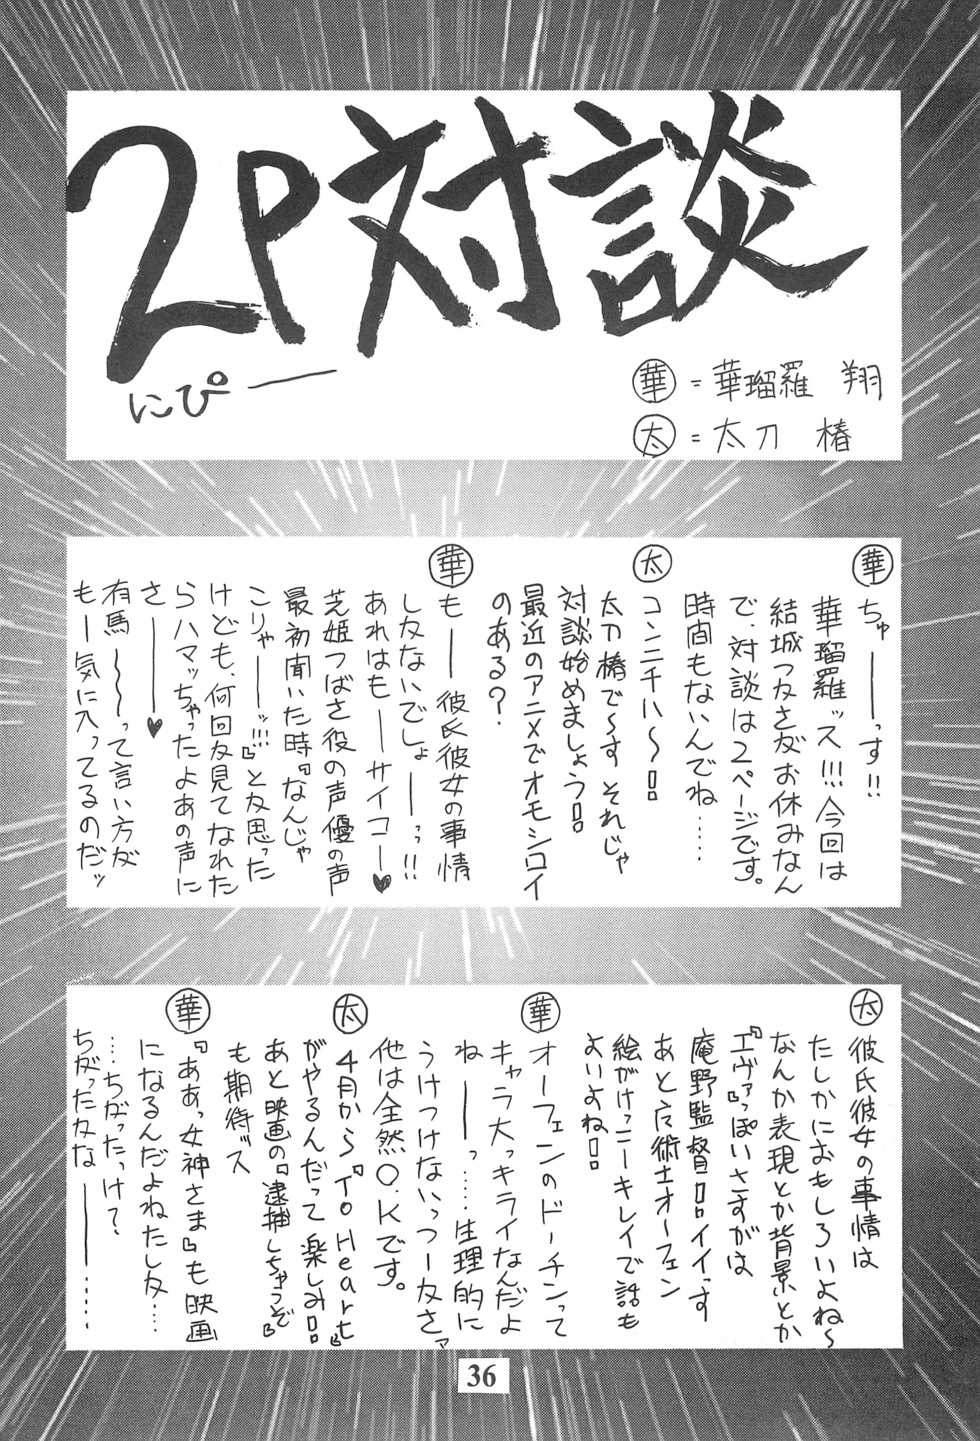 2P対談
にぴー
華=華瑠羅 翔
太=太刀 椿
華
ちゅーーっす!!
華瑠羅ッス!!!今回は
結城つかさがお休みなん
で、対談は2ページです。
時間もないんでね……
太
コンニチハ〜!
太刀椿で〜す それじゃ
対談始めましょう!
最近のアニメでオモシロイ
のある?
華
もーー 彼氏彼女の事情
しかないでしょーーっ!!
あれはもーーサイコー♥
芝姫つばさ役の声優の声
最初聞いた時『なんじゃ
こりゃーーッ!!!』と思った
けども、何回か見てなれた
らハマッちゃったよあの声に
さーーー♥
有馬〜〜〜って言い方が
もー気に入ってるのだッ
太
彼氏彼女の事情は
たしかにおもしろいよね〜
なんか表現とか背景とか
『エヴァ』っぽいさすがは
庵野監督!!イイっす
あと魔術士オーフェン
絵がけっこーキレイで話も
よいよね!
華
オーフェンのドーチンって
キャラ大っキライなんだよ
ねーーっ……生理的に
うけつけないっつーかさァ
他は全然O.Kです。
太
4月から『To Heart』
がやるんだって楽しみ!!
あと映画の『逮捕しちゃうぞ』
も期待ッス
華
『ああっ女神さま』も映画
になるんだよねたしか…
…ちがったっけ?
ちがったかなーーー……
36